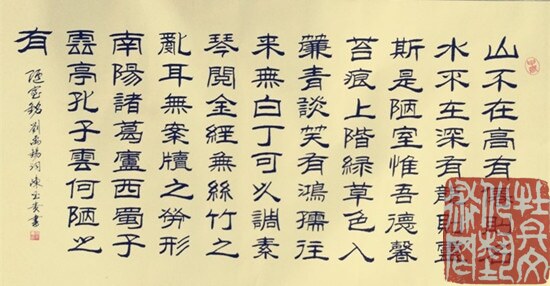 山不在高有
水不在深有龍則靈
斯是陋室惟吾德馨
苔痕上階綠草色入
簾青談笑有鴻儒往
来無白丁可以調素
琴閱金經無絲竹之
亂耳無案牘之勞形
南陽諸葛廬西蜀子
雲亭孔子雲何陋之
有
陋室銘 劉禹錫詞 書